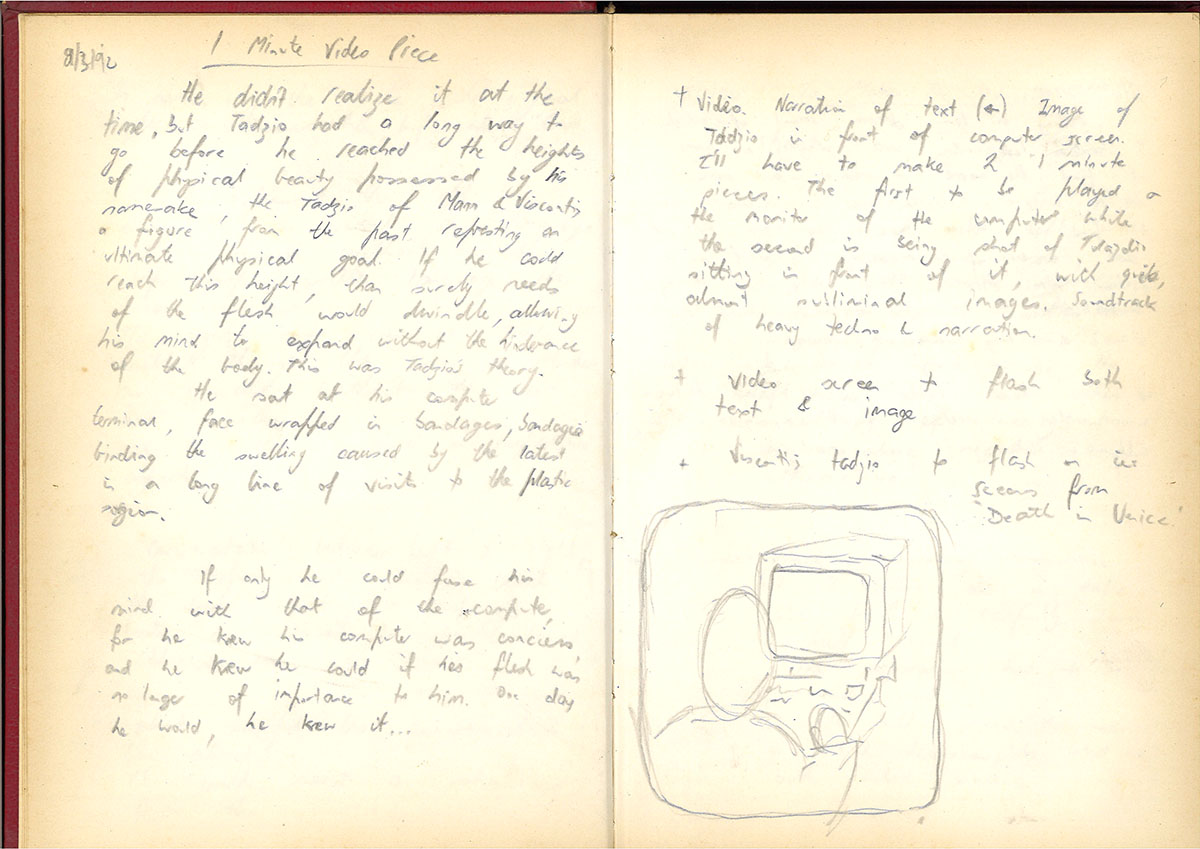 8/3/92
1 Minute Video Piece
He didn't realize it at the
time, but Tadzio had a long way to
go before he reached the heights
of physical beauty possessed by his
namesake, the Tadzio of Mann & Visconti
a figure from the past an
ultimate physical goal. If he could
reach this height, than surely needs
of the flesh would dwindle, allowing
his mind to expand without the hinderance
of the body. This was Tadzio's theory.
He sat at his computer
terminal, face wrapped in bandages, bandages
binding the swelling caused by the latest
in a long line of visits to the plastic
If only he could fuse his
mind with that of the computer,
for he knew his computer was
and he knew he could if his flesh was
no longer of importance to him. One day
he would, he knew it...
+ Video. Narration of text (←) Image of
Tadzio in front of computer screen.
I'll have to make 2 1 minute
pieces. The first to be played o
the monitor of the computer while
the second is being shot of
sitting in front of it, with
almost subliminal images. Soundtrack
of heavy techno & narration.
+ Video screen to flash both
text & image
+ Visconti's tadzio to flash on ie:
from
'Death in Venice'